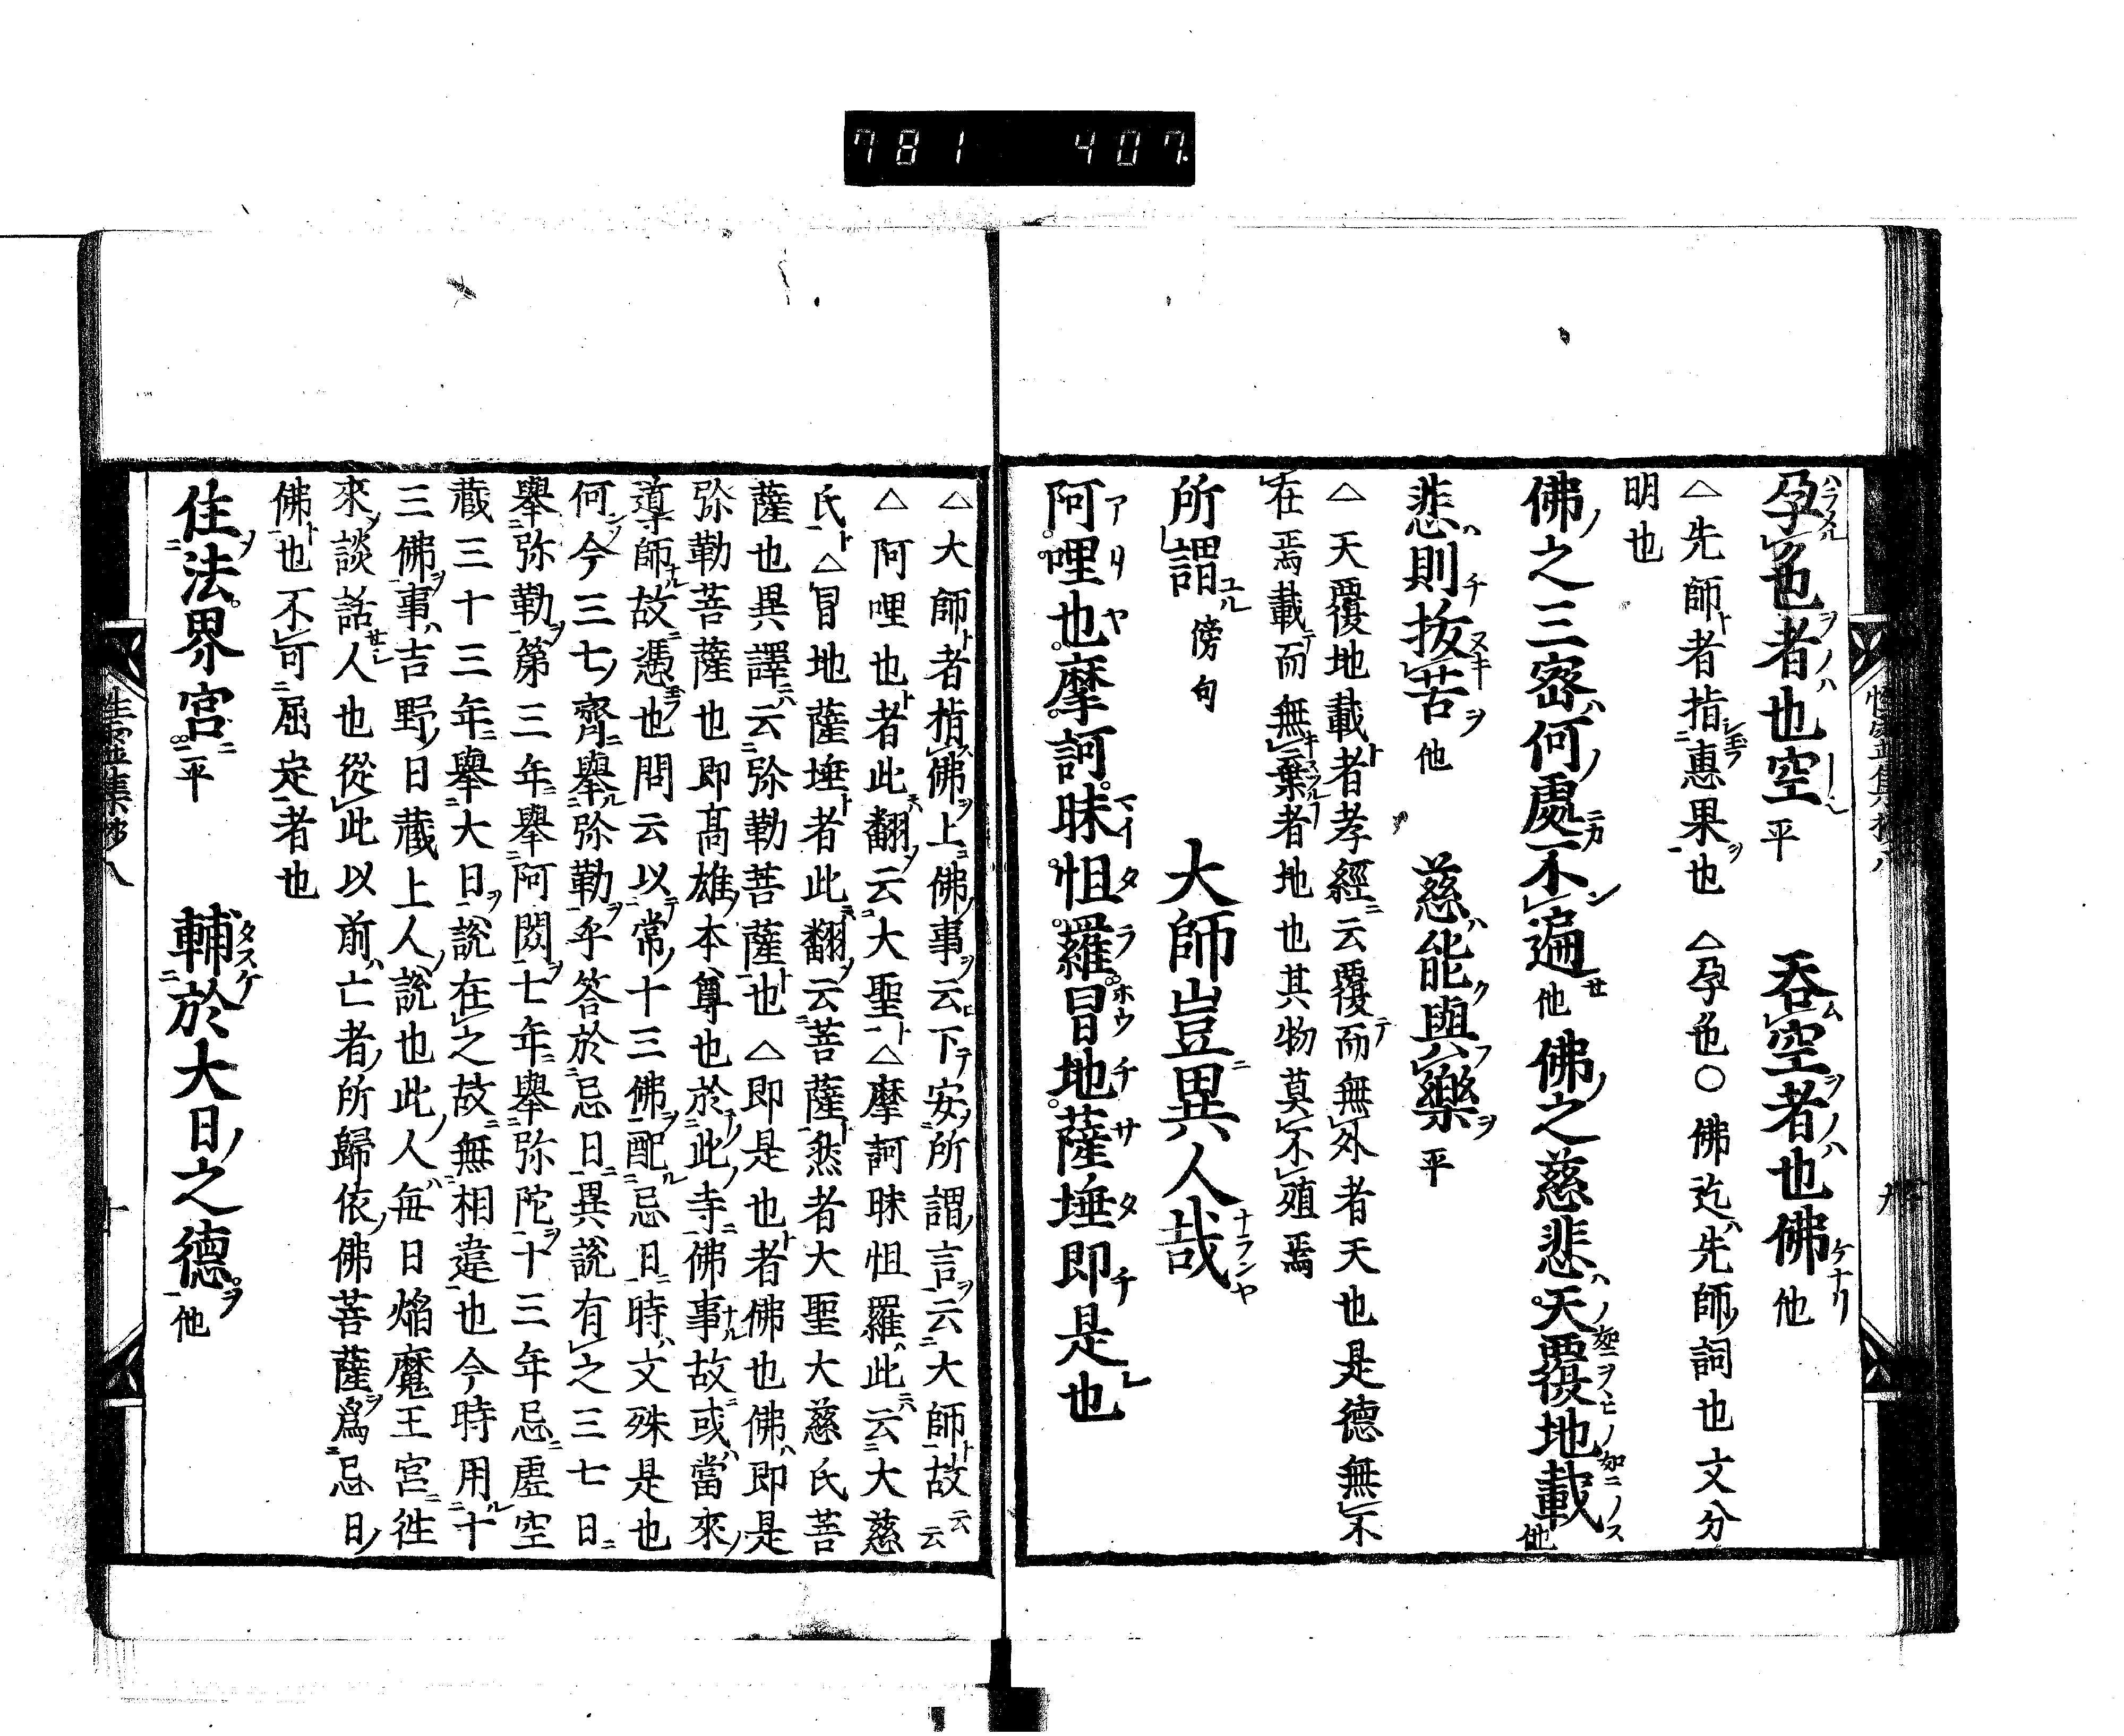 781 407
孕色者也空平 吞空者也佛他
△先師者指惠果也 △孕色○佛迄先師詞也文分
明也
佛之三密何處不遍他 佛之慈悲天覆地載他
悲則拔苦他 慈能與樂平
△天覆地載者孝經云覆而無外者天也是德無不
在焉載而無棄者地也其物莫不殖焉
所謂傍句 大師豈異人哉
阿哩也摩訶昧怛羅冒地薩埵即是也
△大師者指佛上佛事云下安所謂言云大師故云云
△阿哩也者此翻云大聖△摩訶昧怛羅此云大慈
氏△冒地薩埵者此翻云菩薩然者大聖大慈氏菩
薩也異譯云弥勒菩薩也△即是也者佛也佛即是
弥勒菩薩也即高雄本尊也於此寺佛事故或當來
導師故憑也問云以常十三佛配忌日時文殊是也
何今三七齊舉弥勒乎答於忌日異說有之三七日
舉弥勒第三年舉阿閦七年舉弥陀十三年忌虛空
藏三十三年舉大日說在之故無相違也今時用十
三佛事吉野日藏上人說也此人每日焔魔王宮徃
來談話人也從此以前亡者所歸依佛菩薩爲忌日
佛也不可屈定者也
住法界宮平 輔於大日之德他
性靈集抄八